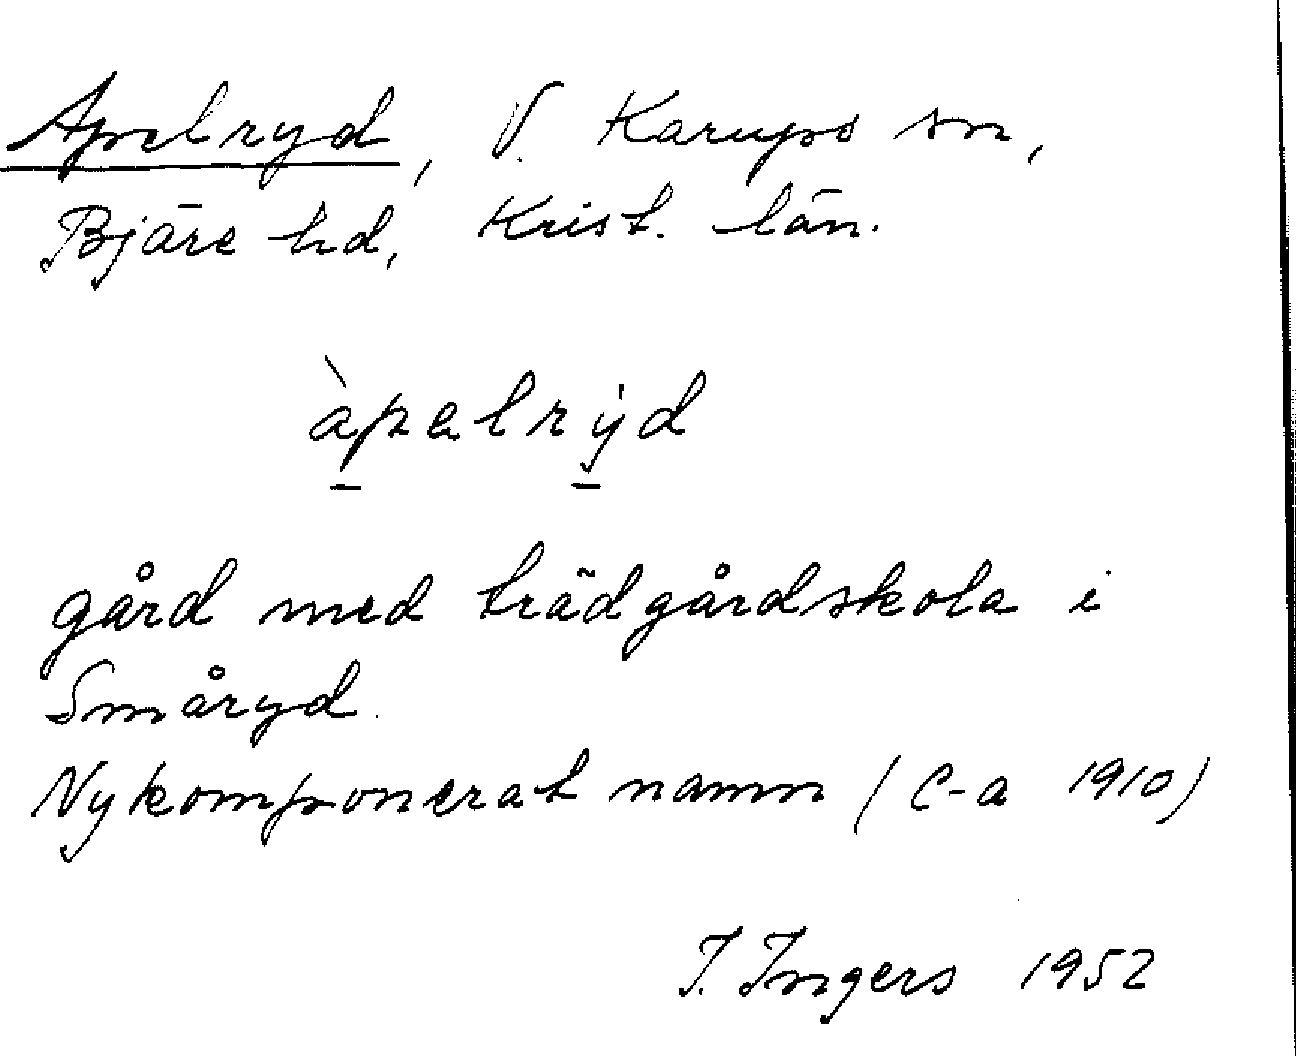 Apelryd, V. Karups sn,
Bjäre hd, Krist. län.
àpalrýd
gård med trädgårdskola i
Småryd.
Nykomponerat namn (c-a 1910)
I. Ingers 1952